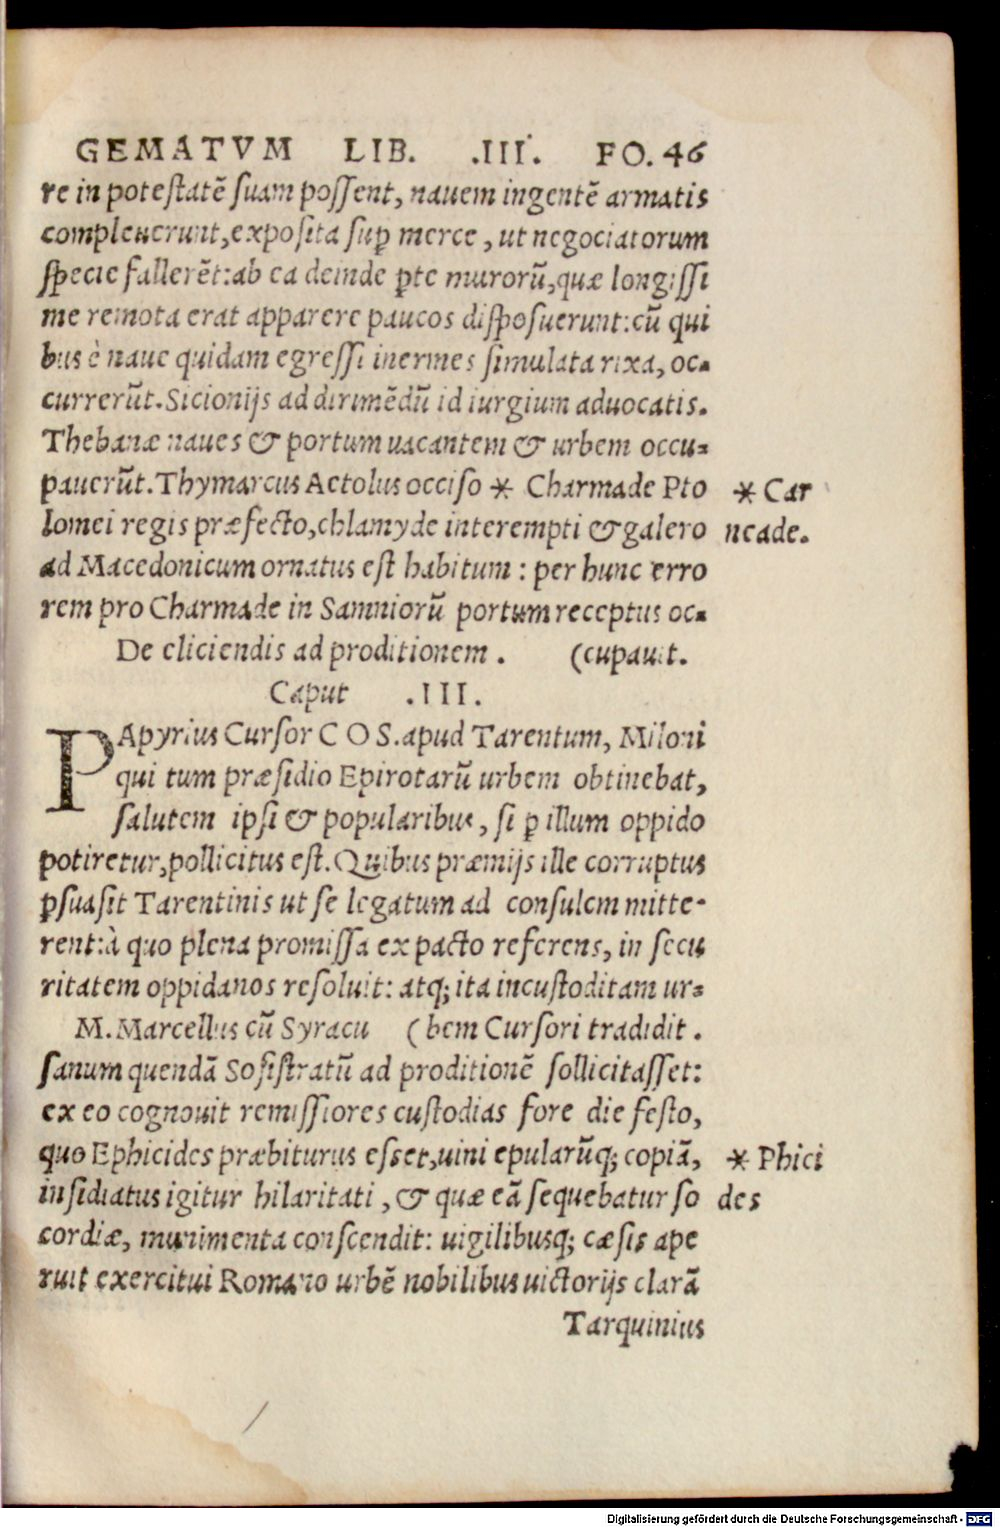 GEMATVM LIB. .III. FO. 46
re in potestatē suam possent, nauem ingentē armatis
compleuerunt, exposita suꝑ merce, ut negociatorum
specie fallerēt: ab ea deinde ꝑte murorū, quæ longissi
me remota erat apparere paucos disposuerunt: cū qui
bus è naue quidam egressi inermes simulata rixa, oc-
currerūt. Sicionijs ad dirimēdū id iurgium aduocatis.
Thebanæ naues & portum uacantem & urbem occu-
pauerūt. Thymarcus Aetolus occiso * Charmade Pto
* Car
lomei regis præfecto, chlamyde interempti & galero
neade.
ad Macedonicum ornatus est habitum: per hunc erro
rem pro Charmade in Samniorū portum receptus oc-
De eliciendis ad proditionem. (cupauit.
Caput .III.
PApyrius Cursor COS. apud Tarentum, Miloni
qui tum præsidio Epirotarū urbem obtinebat,
salutem ipsi & popularibus, si ꝑ illum oppido
potiretur, pollicitus est. Quibus præmijs ille corruptus
ꝑsuasit Tarentinis ut se legatum ad consulem mitte-
rent: à quo plena promissa ex pacto referens, in secu
ritatem oppidanos resoluit: atq; ita incustoditam ur-
M. Marcellus cū Syracu (bem Cursori tradidit.
sanum quendā Sosistratū ad proditionē sollicitasset:
ex eo cognouit remissiores custodias fore die festo,
quo Ephicides præbiturus esset, uini epularūq; copiā,
* Phici
insidiatus igitur hilaritati, & quæ eā sequebatur so
des
cordiæ, munimenta conscendit: uigilibusq; cæsis ape
ruit exercitui Romano urbē nobilibus uictorijs clarā
Tarquinius
Digitalisierung gefördert durch die Deutsche Forschungsgemeinschaft - DFG